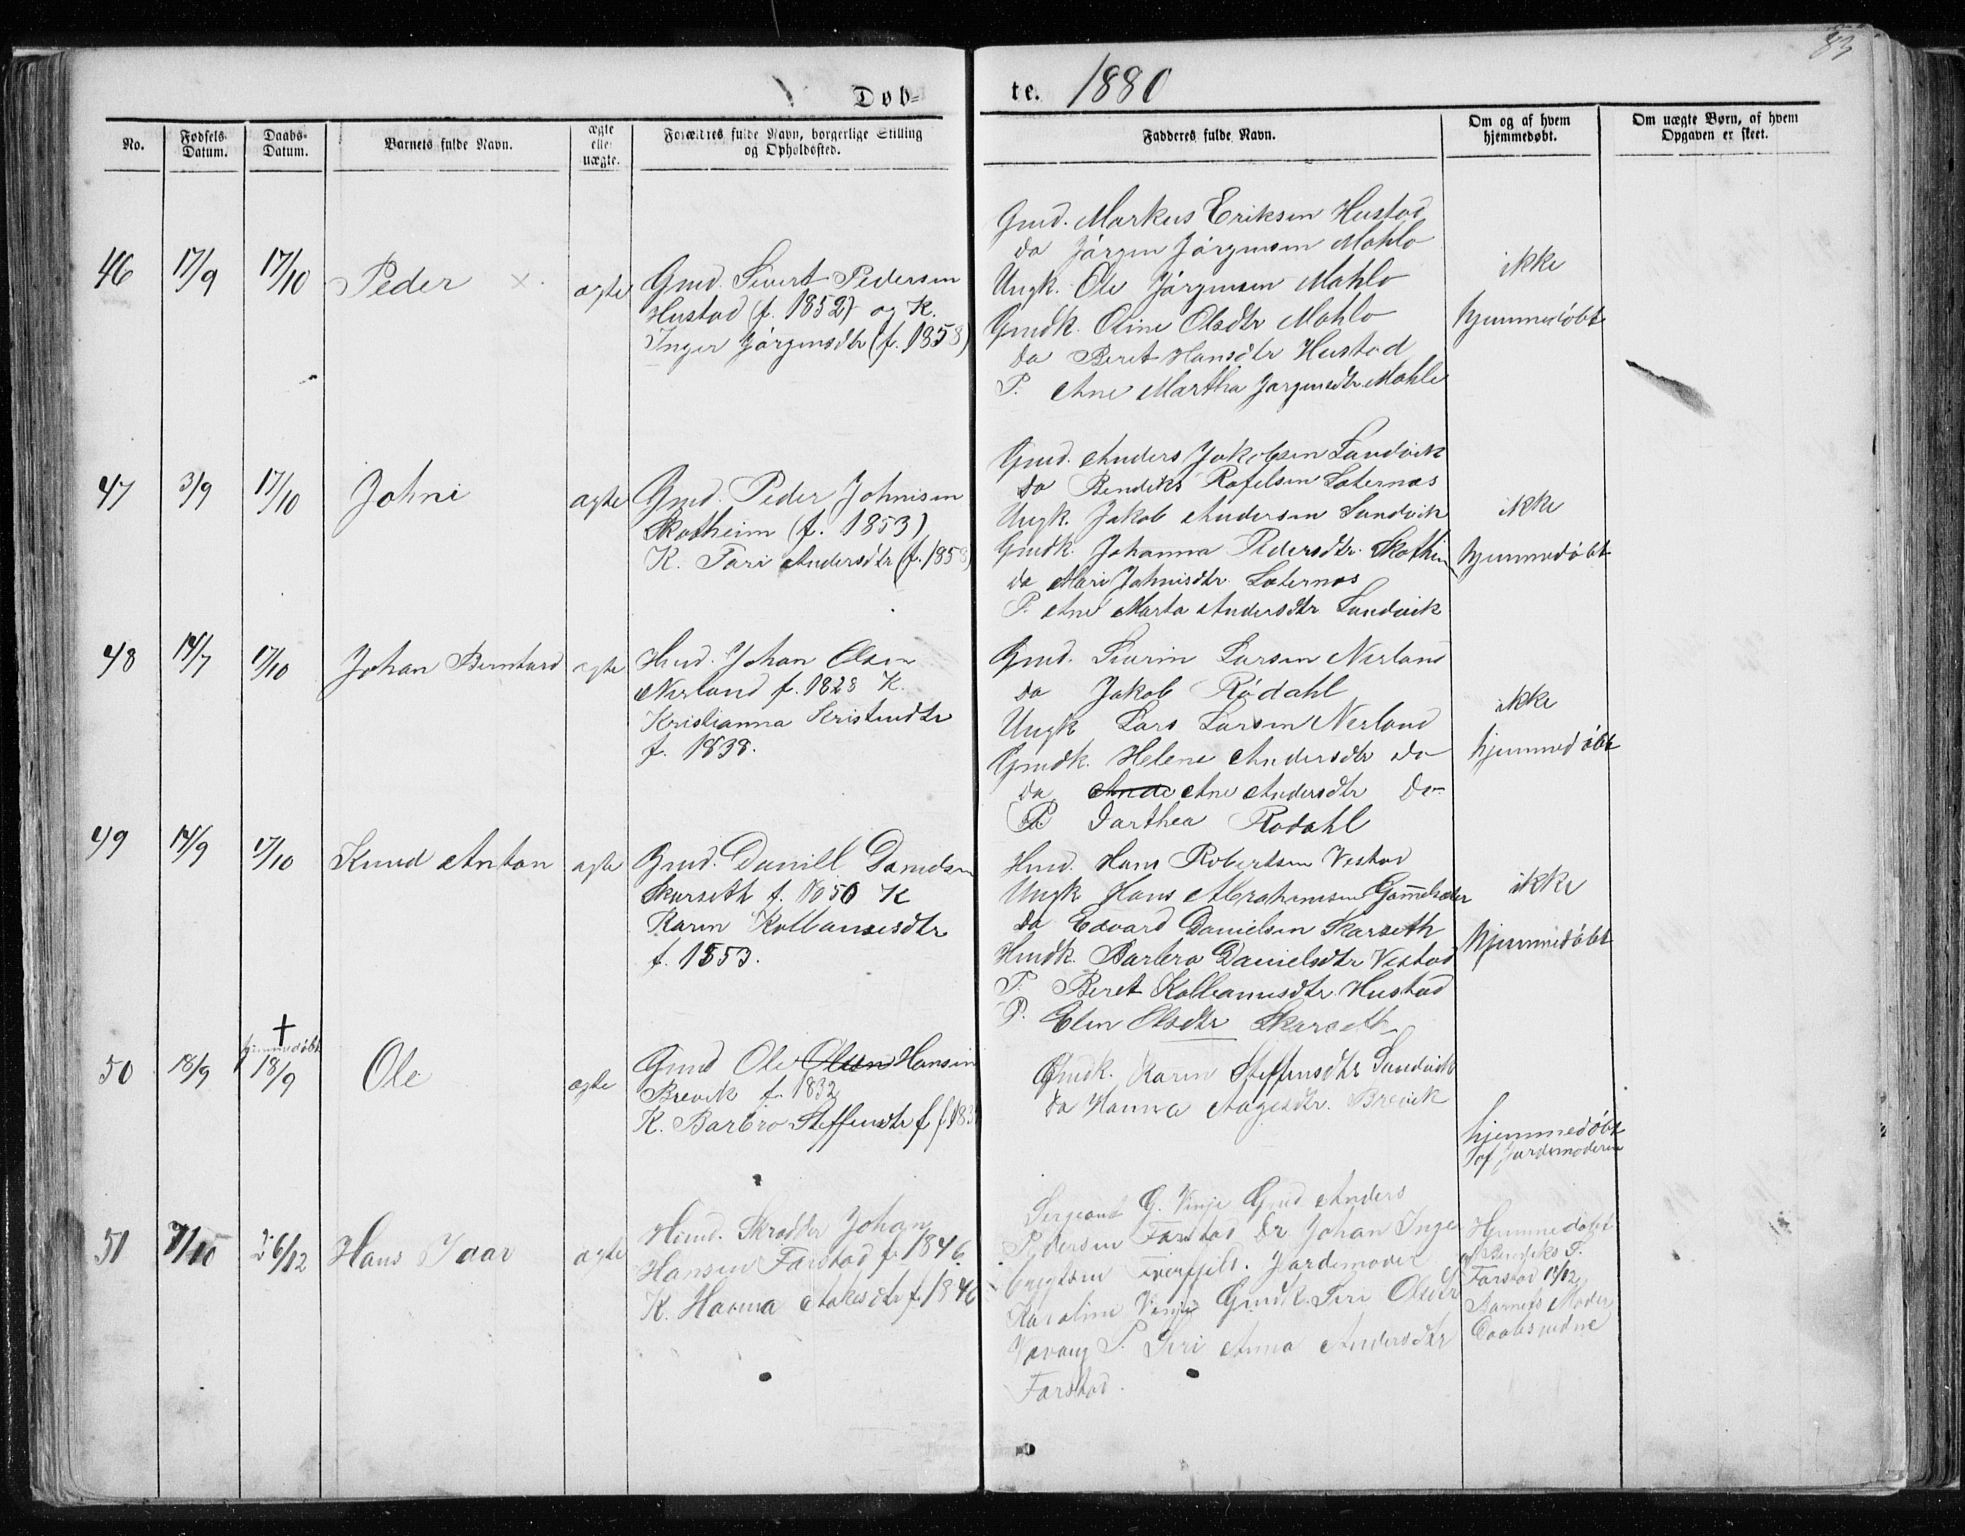 83
Døb=
te. 1880
No.
Fødsels Datum.
Daabs- Datum.
Barnets fulde Navn.
ægte eller uægte.
Forældres fulde Navn, borgerlige Stilling og Opholdssted.
Fadderes fulde Navn.
Om og af hvem hjemmedøbt.
Om uægte Børn, af hvem Opgaven er skeet.
46 17/9 17/10 Peder × ægte
Gmd. Sivert Pedersen
Hustad (f. 1852) og K.
Inger Jørgensdtr (f. 1858)
Gmd. Markus Eriksen Hustad
do Jørgen Jørgensen Mahlo
Ungk. Ole Jørgensen Mahlo
Gmdk. Oline Olsdtr Mahlo
do Beret Hansdtr Hustad
P. Ane Martha Jørgensdtr Mahle
ikke
hjemmedøbt
47 3/9 17/10 Johni ægte
Gmd. Peder Johnisen
Skotheim (f. 1853)
K. Tari Andersdtr (f. 1858)
Gmd. Anders Jakobsen Sandvik
do Bendiks Rafelsen Laternæs
Ungk. Jakob Andersen Sandvik
Gmdk. Johanna Pedersdtr. Skothim
do Mari Johnisdtr. Laternæs
P. Ane Marta Andersdtr Sandvik
ikke
hjemmedøbt
48 14/7 17/10 Johan Bernhard ægte
Hmd. Johan Olsen
Nerland f. 1828 K.
Kristianna Kristendtr
f. 1838.
Gmd. Siurin Larsen Nerland
do Jakob Rødahl
Ungk Lars Larsen Nerland
Gmdk. Helene Andersdtr do
da Ande Ane Andersdtr do
P. Darthea Rødahl
ikke
hjemmedøbt
49 14/9 17/10 Knud Anton ægte
Gmd. Daniel Danielsen
Skarseth f. 1850 K
Karen Kolbanusdtr
f. 1853.
Hmd. Hans Robertsen Vestad
Ungk Hans Abrahamsen Gammelsæter
do Edvard Danielsen Skarseth
Hmdk. Barbro Danielsdtr Vestad
P. Beret Kolbanusdtr Hustad
P. Elen Olsdtr Skarseth
ikke
hjemmedøbt
†
hjemmedøbt
50 18/9 18/9 Ole ægte
Gmd Ole Olsen Hansen
Brevik f. 1832
K. Barbro Steffensdtr f
Gmdk. Karen Steffensdtr Sandvik
do Hanna Aagesdtr. Brevik
hjemmedøbt
af Jordemoderen
51 7/10 26/12 Hans Ivar ægte
Hmd. Skrædder Johan
Hansen Farstad f. 1846.
K. Hanna Aakesdtr f. 1846
Sergeant G. Vinje Gmd Anders
Pedersen Farstad Do Johan Inge
brigtsen Tverfjeld. Jordemoder
Karoline Vinje Gmdk. Siri Olsdtr
Vevang P. Siri Anna Andersdtr
Farstad.
Hjemmedøbt
af Bendiks P.
Farstad 17/12
Barnets Moder
Daabsvidne